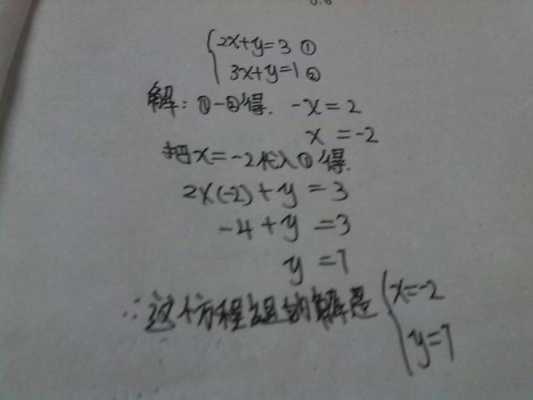 {2x+y=3 ①
3x+y=1 ②
解：①-②得. -x=2
x=-2
把x=-2代入①得.
2×(-2)+y=3
-4+y=3
y=7
∴这个方程组的解是{x=-2
y=7